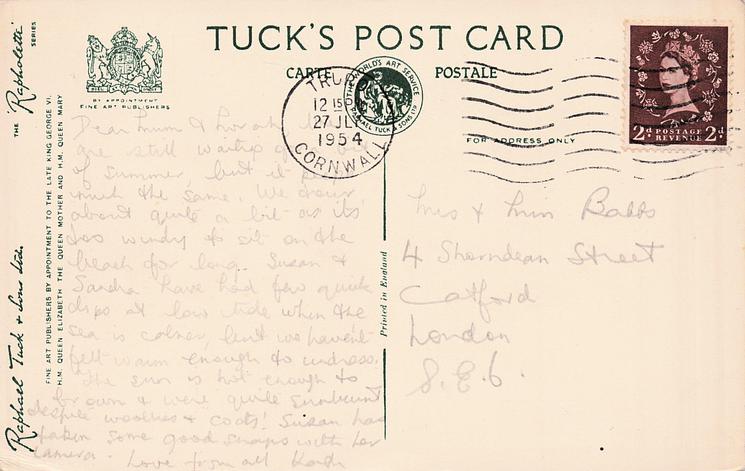 TUCK'S POST CARD
CARTE POSTALE
BY APPOINTMENT
FINE ART PUBLISHERS
THE "Rapholette" SERIES
Raphael Tuck & Sons Ltd.
FINE ART PUBLISHERS BY APPOINTMENT TO THE LATE KING GEORGE VI.
H.M. QUEEN ELIZABETH THE QUEEN MOTHER AND H.M. QUEEN MARY
THE WORLD'S ART SERVICE
RAPHAEL TUCK & SONS LTD
TRURO
12 15 PM
27 JLY
1954
CORNWALL
POSTAGE
2d REVENUE 2d
FOR ADDRESS ONLY
Printed in England
Dear Mum &
are still waiting
of summer, but it
much the same. We
about quite a bit as its
too windy to sit on the
beach for long. Susan &
Sandra have had few quick
dips at low tide when the
sea is calmer, but we haven't
felt warm enough to undress.
The sun is hot enough to
& were quite sunburnt
despite woollies & coats! Susan has
taken some good snaps with her
camera. Love from all
Mrs & Miss Babbs
4 Sherndean Street
Catford
London
S.E.6.